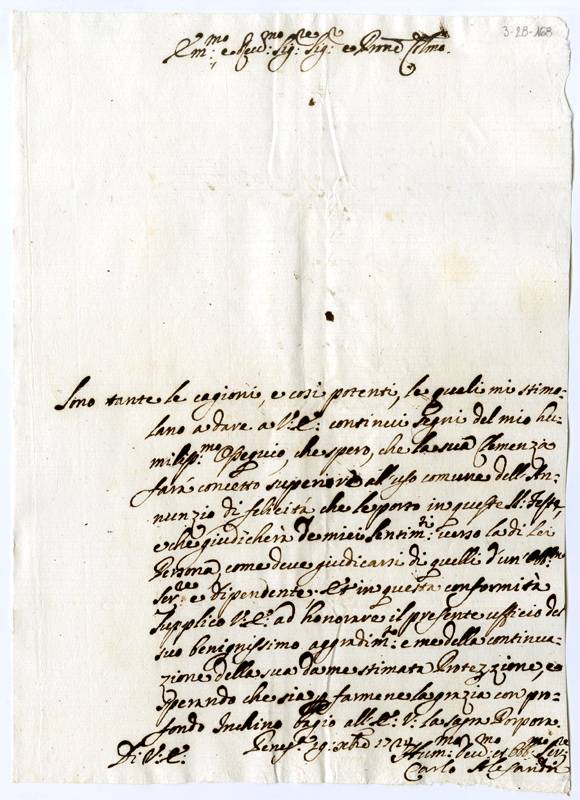 3-28-168
Em:mo e Rev:mo Sig:re Sig:r e Prone Colmo.
Sono tante le cagioni, e così potenti, le quali mi stimo-
lano a dare a V:E: continui segni del mio hu-
miliss:mo Ossequio, che spero, che la sua Clemenza
farà concetto superiore all'uso comune dell'An-
nunzio di felicità che le porto in queste S:te Feste,
e che giudicherà de miei Sentim:ti verso la di Lei
Persona, come deve giudicarsi di quelli d'un' obb:mo
Ser:re e dipendente. Et in questa conformità
supplico V:E: ad honorare il presente ufficio del
suo benignissimo aggradim:to e me della continua-
zione della sua da me stimata Protezzione, e
sperando che sia p farmene la grazia con pro-
fondo Inchino bagio all'E: V: la sagra Porpora.
Di V:E: 29: Xbre
Hum:mo Dev:mo et Obb:mo Ser:re
Carlo